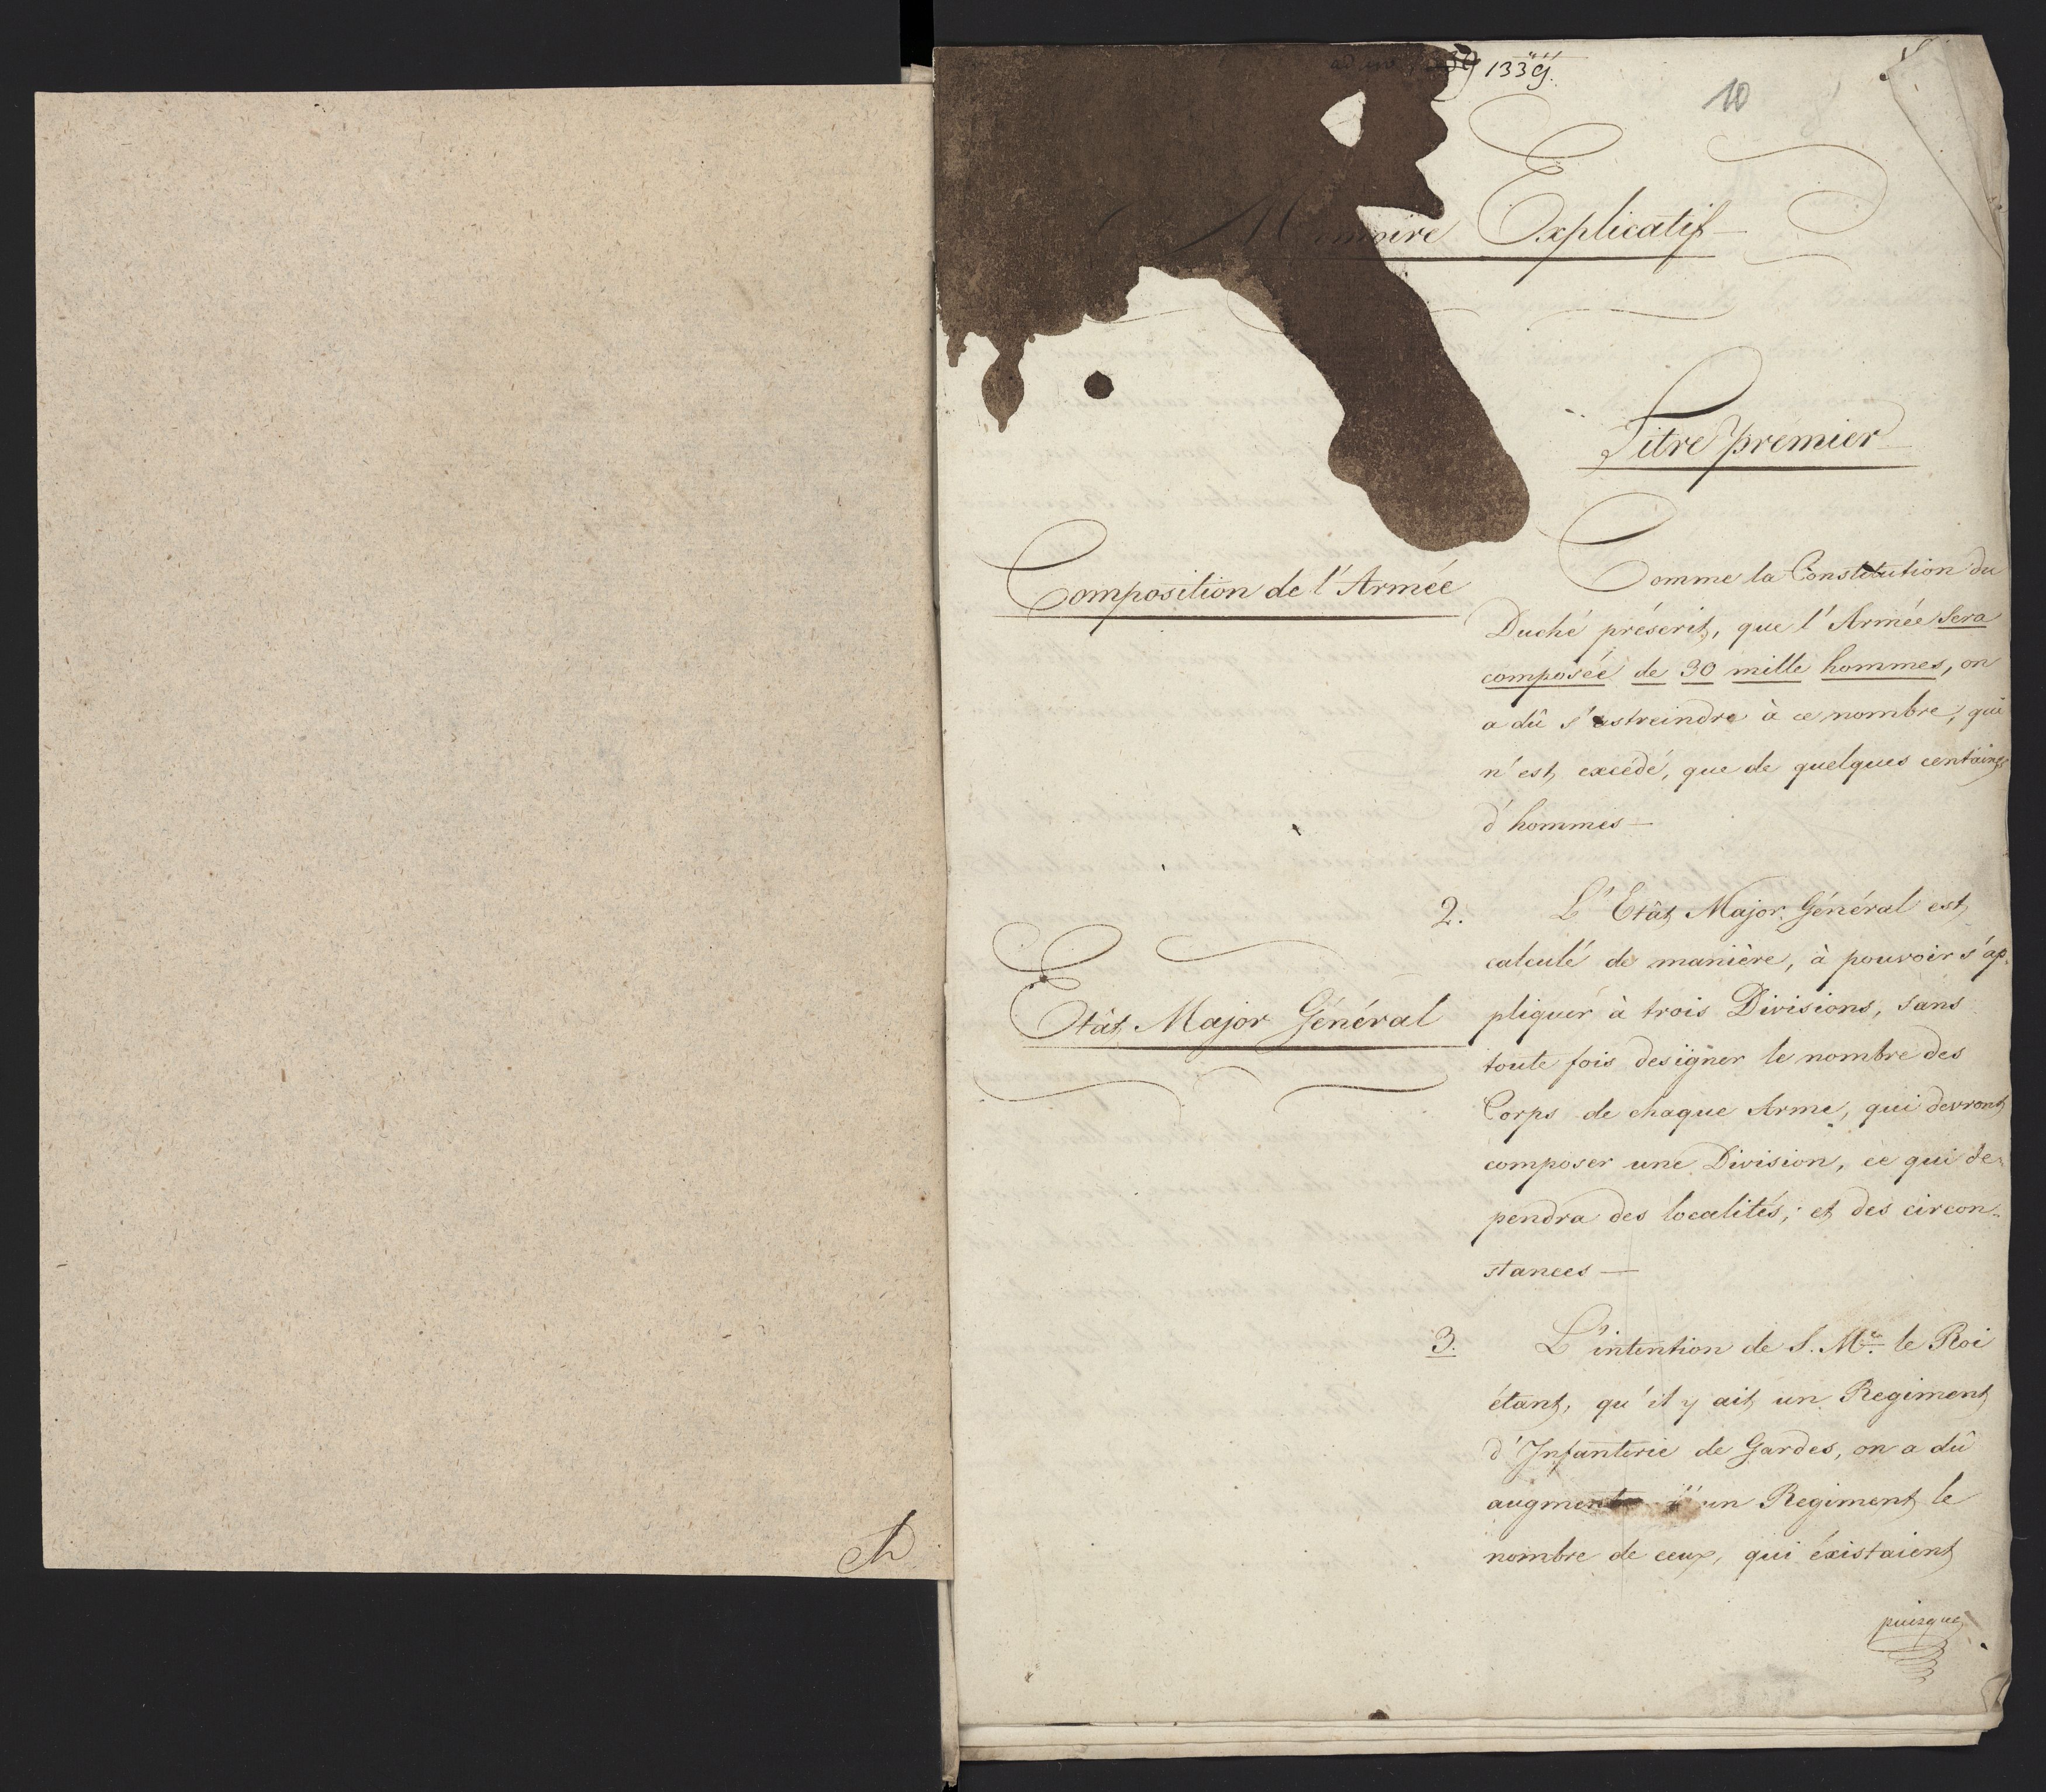 1339.
10
Mémoire Explicatif
Titre premier
Composition de l'Armée
Comme la Constitution du
Duché préscrit, que l'Armée sera
composée de 30 mille hommes, on
a dû s'astreindre à ce nombre, qui
n'est excédé, que de quelques centaines
d'hommes —
Etât Major Général
2. L'Etât Major Général est
calculé de manière, à pouvoir s'ap-
pliquer à trois Divisions, sans
toute fois designer le nombre des
Corps de chaque Arme, qui devront
composer une Division, ce qui de-
pendra des localités, et des circon-
stances —
3. L'intention de S. M.é le Roi
étant, qu'il y ait un Regiment
d'Infanterie de Gardes, on a dû
augmenter d'un Regiment le
nombre de ceux, qui éxistaient
puisque